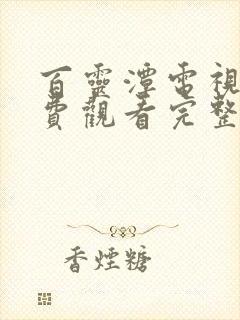 百靈潭電視
費觀看完整
香煙糖